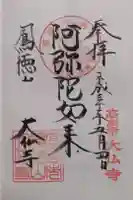 奉拝
平成三十年五月四日
阿弥陀如来
鳳徳山
大仙寺